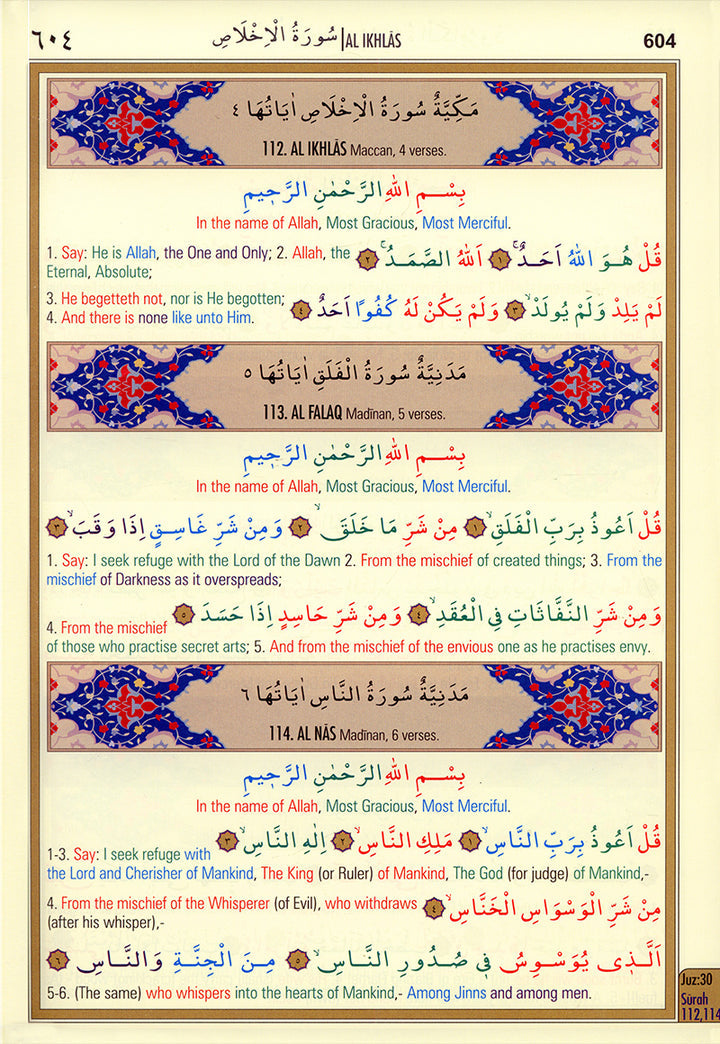 ٦٠٤ سُورَةُ الْاِخْلَاصِ | AL IKHLÃS 604
مَكِّيَّةٌ سُورَةُ الْاِخْلَاصِ اٰيَاتُهَا ٤
112. AL IKHLÃS Maccan, 4 verses.
بِسْمِ اللّٰهِ الرَّحْمٰنِ الرَّحٖيمِ
In the name of Allah, Most Gracious, Most Merciful.
قُلْ هُوَ اللّٰهُ اَحَدٌۚ ١ اَللّٰهُ الصَّمَدُۚ ٢
1. Say: He is Allah, the One and Only; 2. Allah, the
Eternal, Absolute;
لَمْ يَلِدْ وَلَمْ يُولَدْۙ ٣ وَلَمْ يَكُنْ لَهُ كُفُوًا اَحَدٌ ٤
3. He begetteth not, nor is He begotten;
4. And there is none like unto Him.
مَدَنِيَّةٌ سُورَةُ الْفَلَقِ اٰيَاتُهَا ٥
113. AL FALAQ Madīnan, 5 verses.
بِسْمِ اللّٰهِ الرَّحْمٰنِ الرَّحٖيمِ
In the name of Allah, Most Gracious, Most Merciful.
قُلْ اَعُوذُ بِرَبِّ الْفَلَقِۙ ١ مِنْ شَرِّ مَا خَلَقَۙ ٢ وَمِنْ شَرِّ غَاسِقٍ اِذَا وَقَبَۙ ٣
1. Say: I seek refuge with the Lord of the Dawn 2. From the mischief of created things; 3. From the
mischief of Darkness as it overspreads;
وَمِنْ شَرِّ النَّفَّاثَاتِ فِي الْعُقَدِۙ ٤ وَمِنْ شَرِّ حَاسِدٍ اِذَا حَسَدَ ٥
4. From the mischief
of those who practise secret arts; 5. And from the mischief of the envious one as he practises envy.
مَدَنِيَّةٌ سُورَةُ النَّاسِ اٰيَاتُهَا ٦
114. AL NĀS Madīnan, 6 verses.
بِسْمِ اللّٰهِ الرَّحْمٰنِ الرَّحٖيمِ
In the name of Allah, Most Gracious, Most Merciful.
قُلْ اَعُوذُ بِرَبِّ النَّاسِۙ ١ مَلِكِ النَّاسِۙ ٢ اِلٰهِ النَّاسِۙ ٣
1-3. Say: I seek refuge with
the Lord and Cherisher of Mankind, The King (or Ruler) of Mankind, The God (for judge) of Mankind,-
مِنْ شَرِّ الْوَسْوَاسِ الْخَنَّاسِۙ ٤
4. From the mischief of the Whisperer (of Evil), who withdraws
(after his whisper),-
اَلَّذٖى يُوَسْوِسُ فٖى صُدُورِ النَّاسِۙ ٥ مِنَ الْجِنَّةِ وَالنَّاسِ ٦
5-6. (The same) who whispers into the hearts of Mankind,- Among Jinns and among men.
Juz:30
Sūrah
112,114